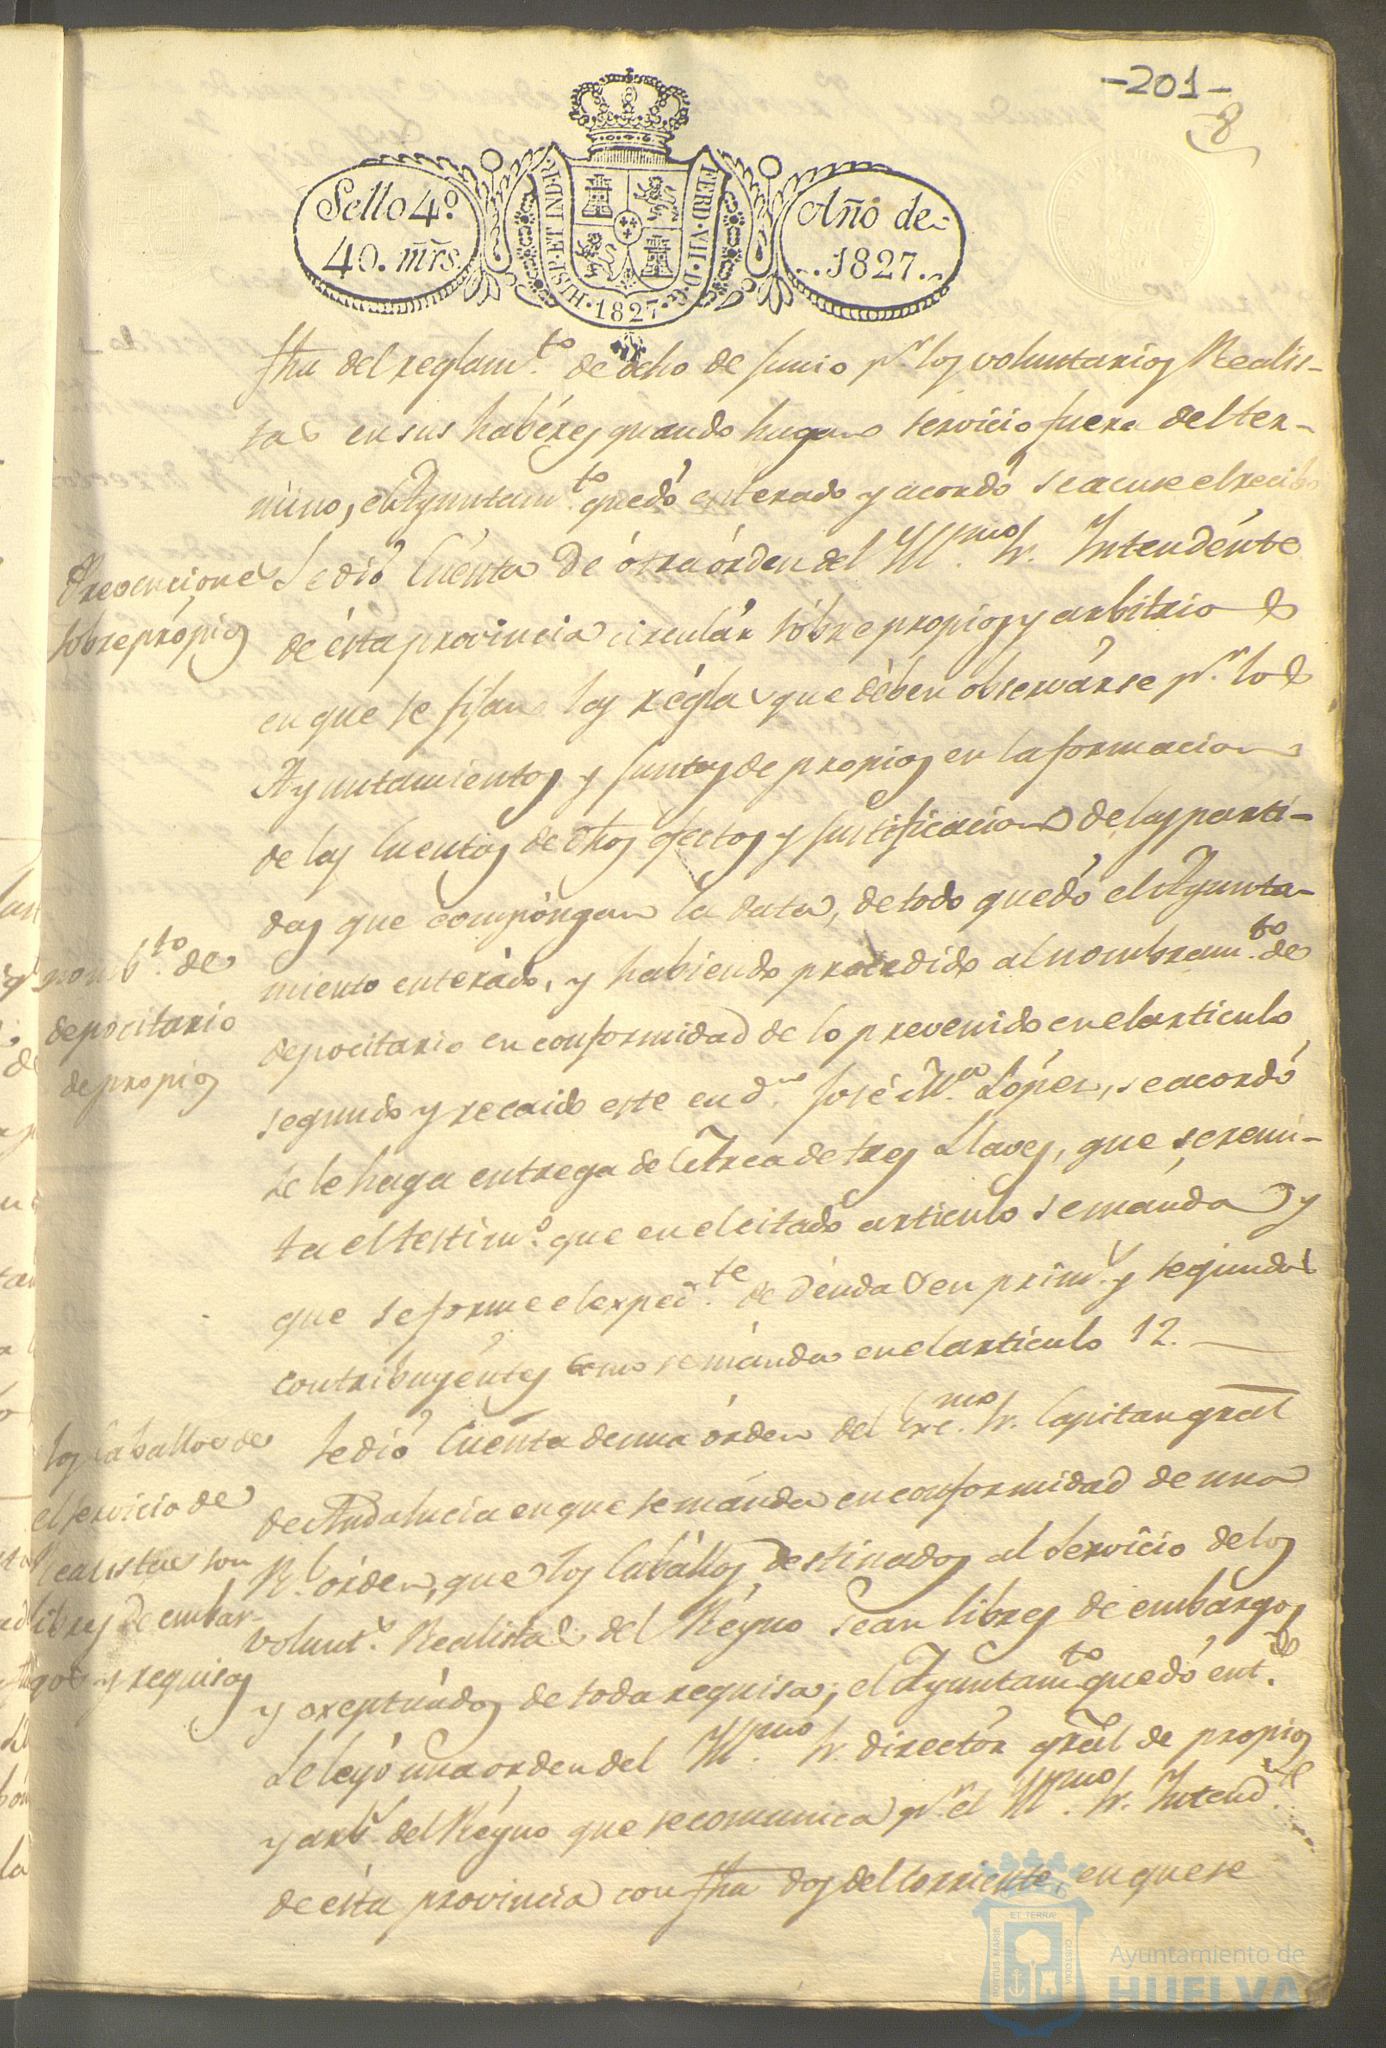 -201-
8
Sello 4º
40. mrs.
HISP. ET INDER.
FERD. VII. D. G.
1827
Año de
1827.
fha del reglamto. de ocho de Junio pr. los voluntarios Realis-
tas en sus habéres quando hagan servicio fuera del ter-
mino, el Ayuntamto. quedó enterado y acordó se acuse el recibo
Prevenciones
sobre própios
Se dió Cuenta de ótra órden del Yllmo. Sr. Intendénte
de ésta provincia circulár sóbre propios y arbitrios
en que se fijan las réglas que dében observárse pr. los
Ayuntamientos y Juntas de propios en la formacion
de las Cuentas de dhos efectos y Justificacion de las parti-
das que compóngan la data, de todo quedó el Ayunta-
nombto. de
depocitario
de propios
miento enterádo, y habiendo procedido al nombramto. de
depocitario en conformidad de lo prevenido en el articulo
segundo y recaido este en dn. José Ma. López, se acordó
se le haga entrega de Arca de tres Llaves, que se remi-
ta el testimo. que en el citado articulo se mánda y
que se forme el expedte. de deudas en prims. y segundos
contribuyéntes como se mánda en el articulo 12.
los Caballos de
el servicio de
Realistas son
libres de embar-
gos y requisas
Se dió Cuenta de una órden del Excmo. Sr. Capitan gral
de Andalucia en que se mánda en conformidad de una
Rl. órden, que los Cabállos destinados al Servicio de los
volunts. Realistas del Reyno sean libres de embárgos
y exeptuádos de toda requisa; el Ayuntamto. quedó entdo.
Se leyó una orden del Yllmo. Sr. directór gral de propios
y arbs. del Reyno que se comunica pr. el Yllmo. Sr. Intendte.
de ésta provincia con fha dos del corriente en que se
PORTUS MARIS
ET TERRAE
CUSTODIA
Ayuntamiento de
HUELVA